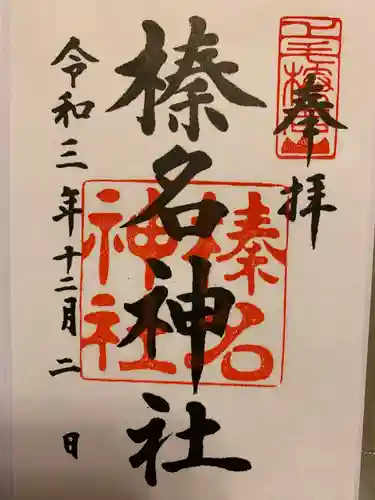 奉拝
榛名神社
令和三年十二月二日
榛名
神社